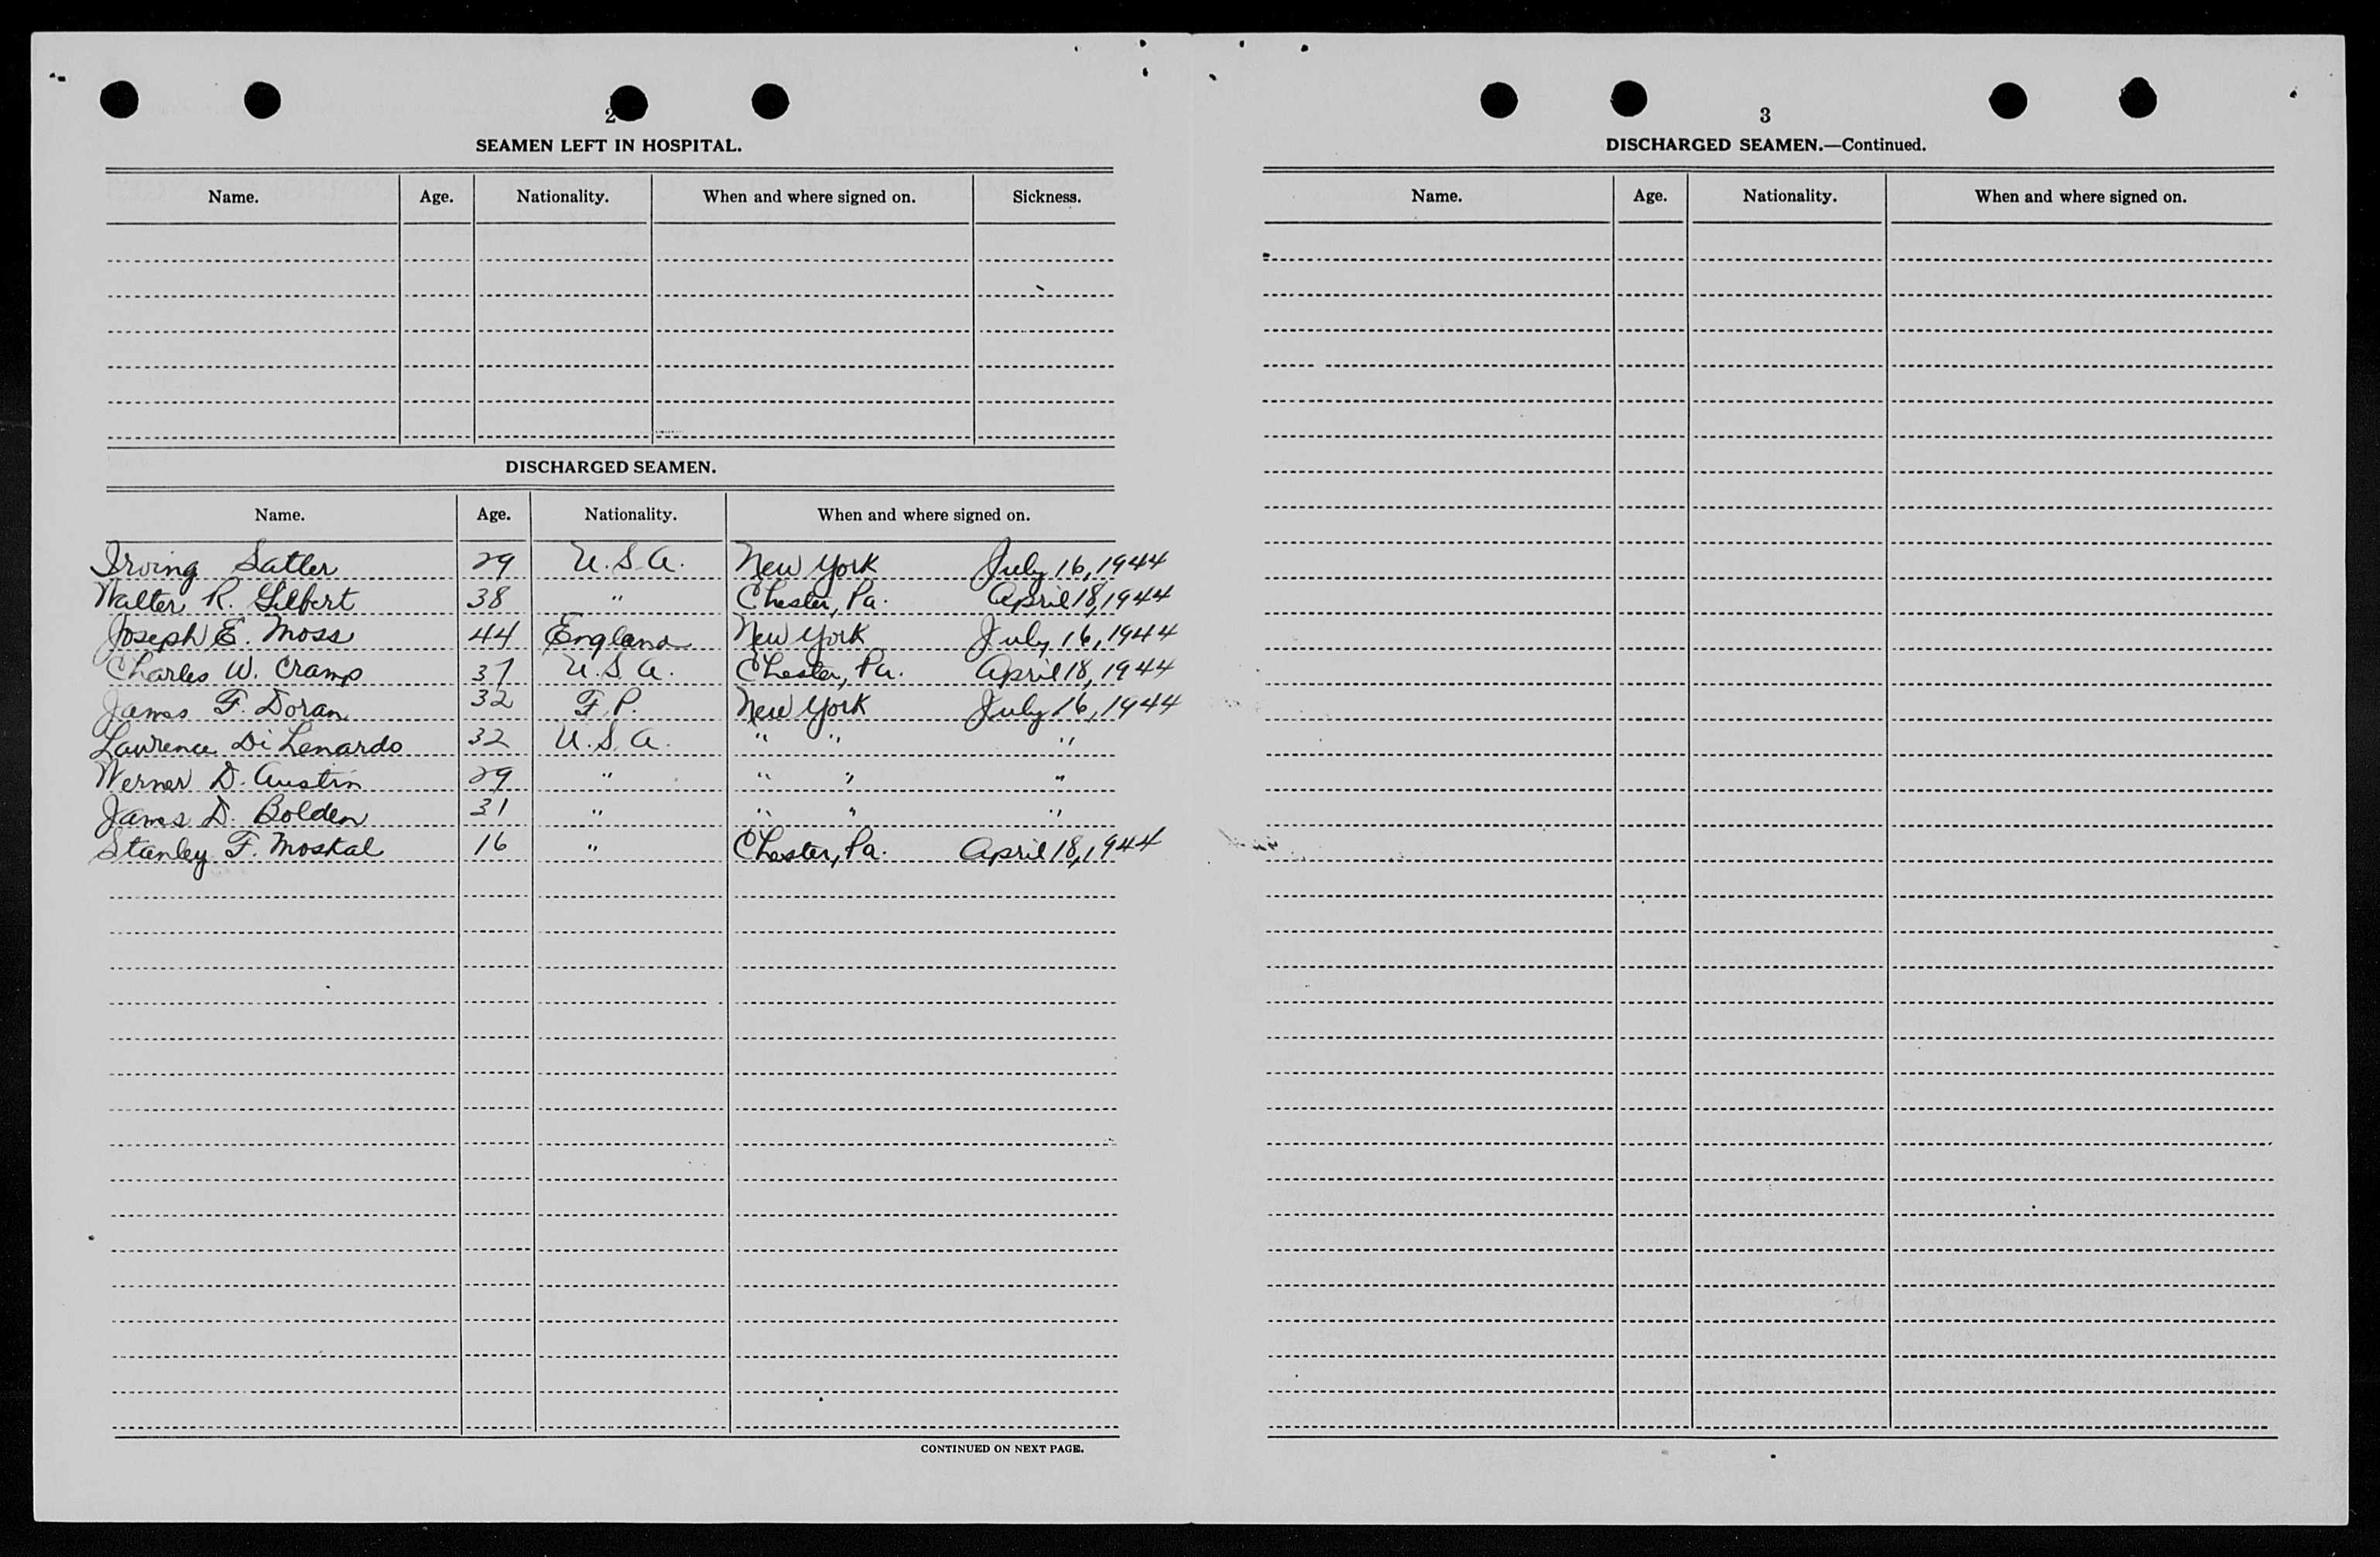 2
SEAMEN LEFT IN HOSPITAL.
Name. Age. Nationality. When and where signed on. Sickness.
DISCHARGED SEAMEN.
Name. Age. Nationality. When and where signed on.
Irving Satler 29 U.S.A. New York July 16, 1944
Walter R. Gilbert 38 " Chester, Pa. April 18, 1944
Joseph E. Moss 44 England New York July 16, 1944
Charles W. Cramp 37 U.S.A. Chester, Pa. April 18, 1944
James F. Doran 32 F.P. New York July 16, 1944
Lawrence Di Lenardo 32 U.S.A. " " "
Werner D. Austin 29 " " " "
James D. Bolden 31 " " " "
Stanley F. Moskal 16 " Chester, Pa. April 18, 1944
CONTINUED ON NEXT PAGE.
3
DISCHARGED SEAMEN.—Continued.
Name. Age. Nationality. When and where signed on.